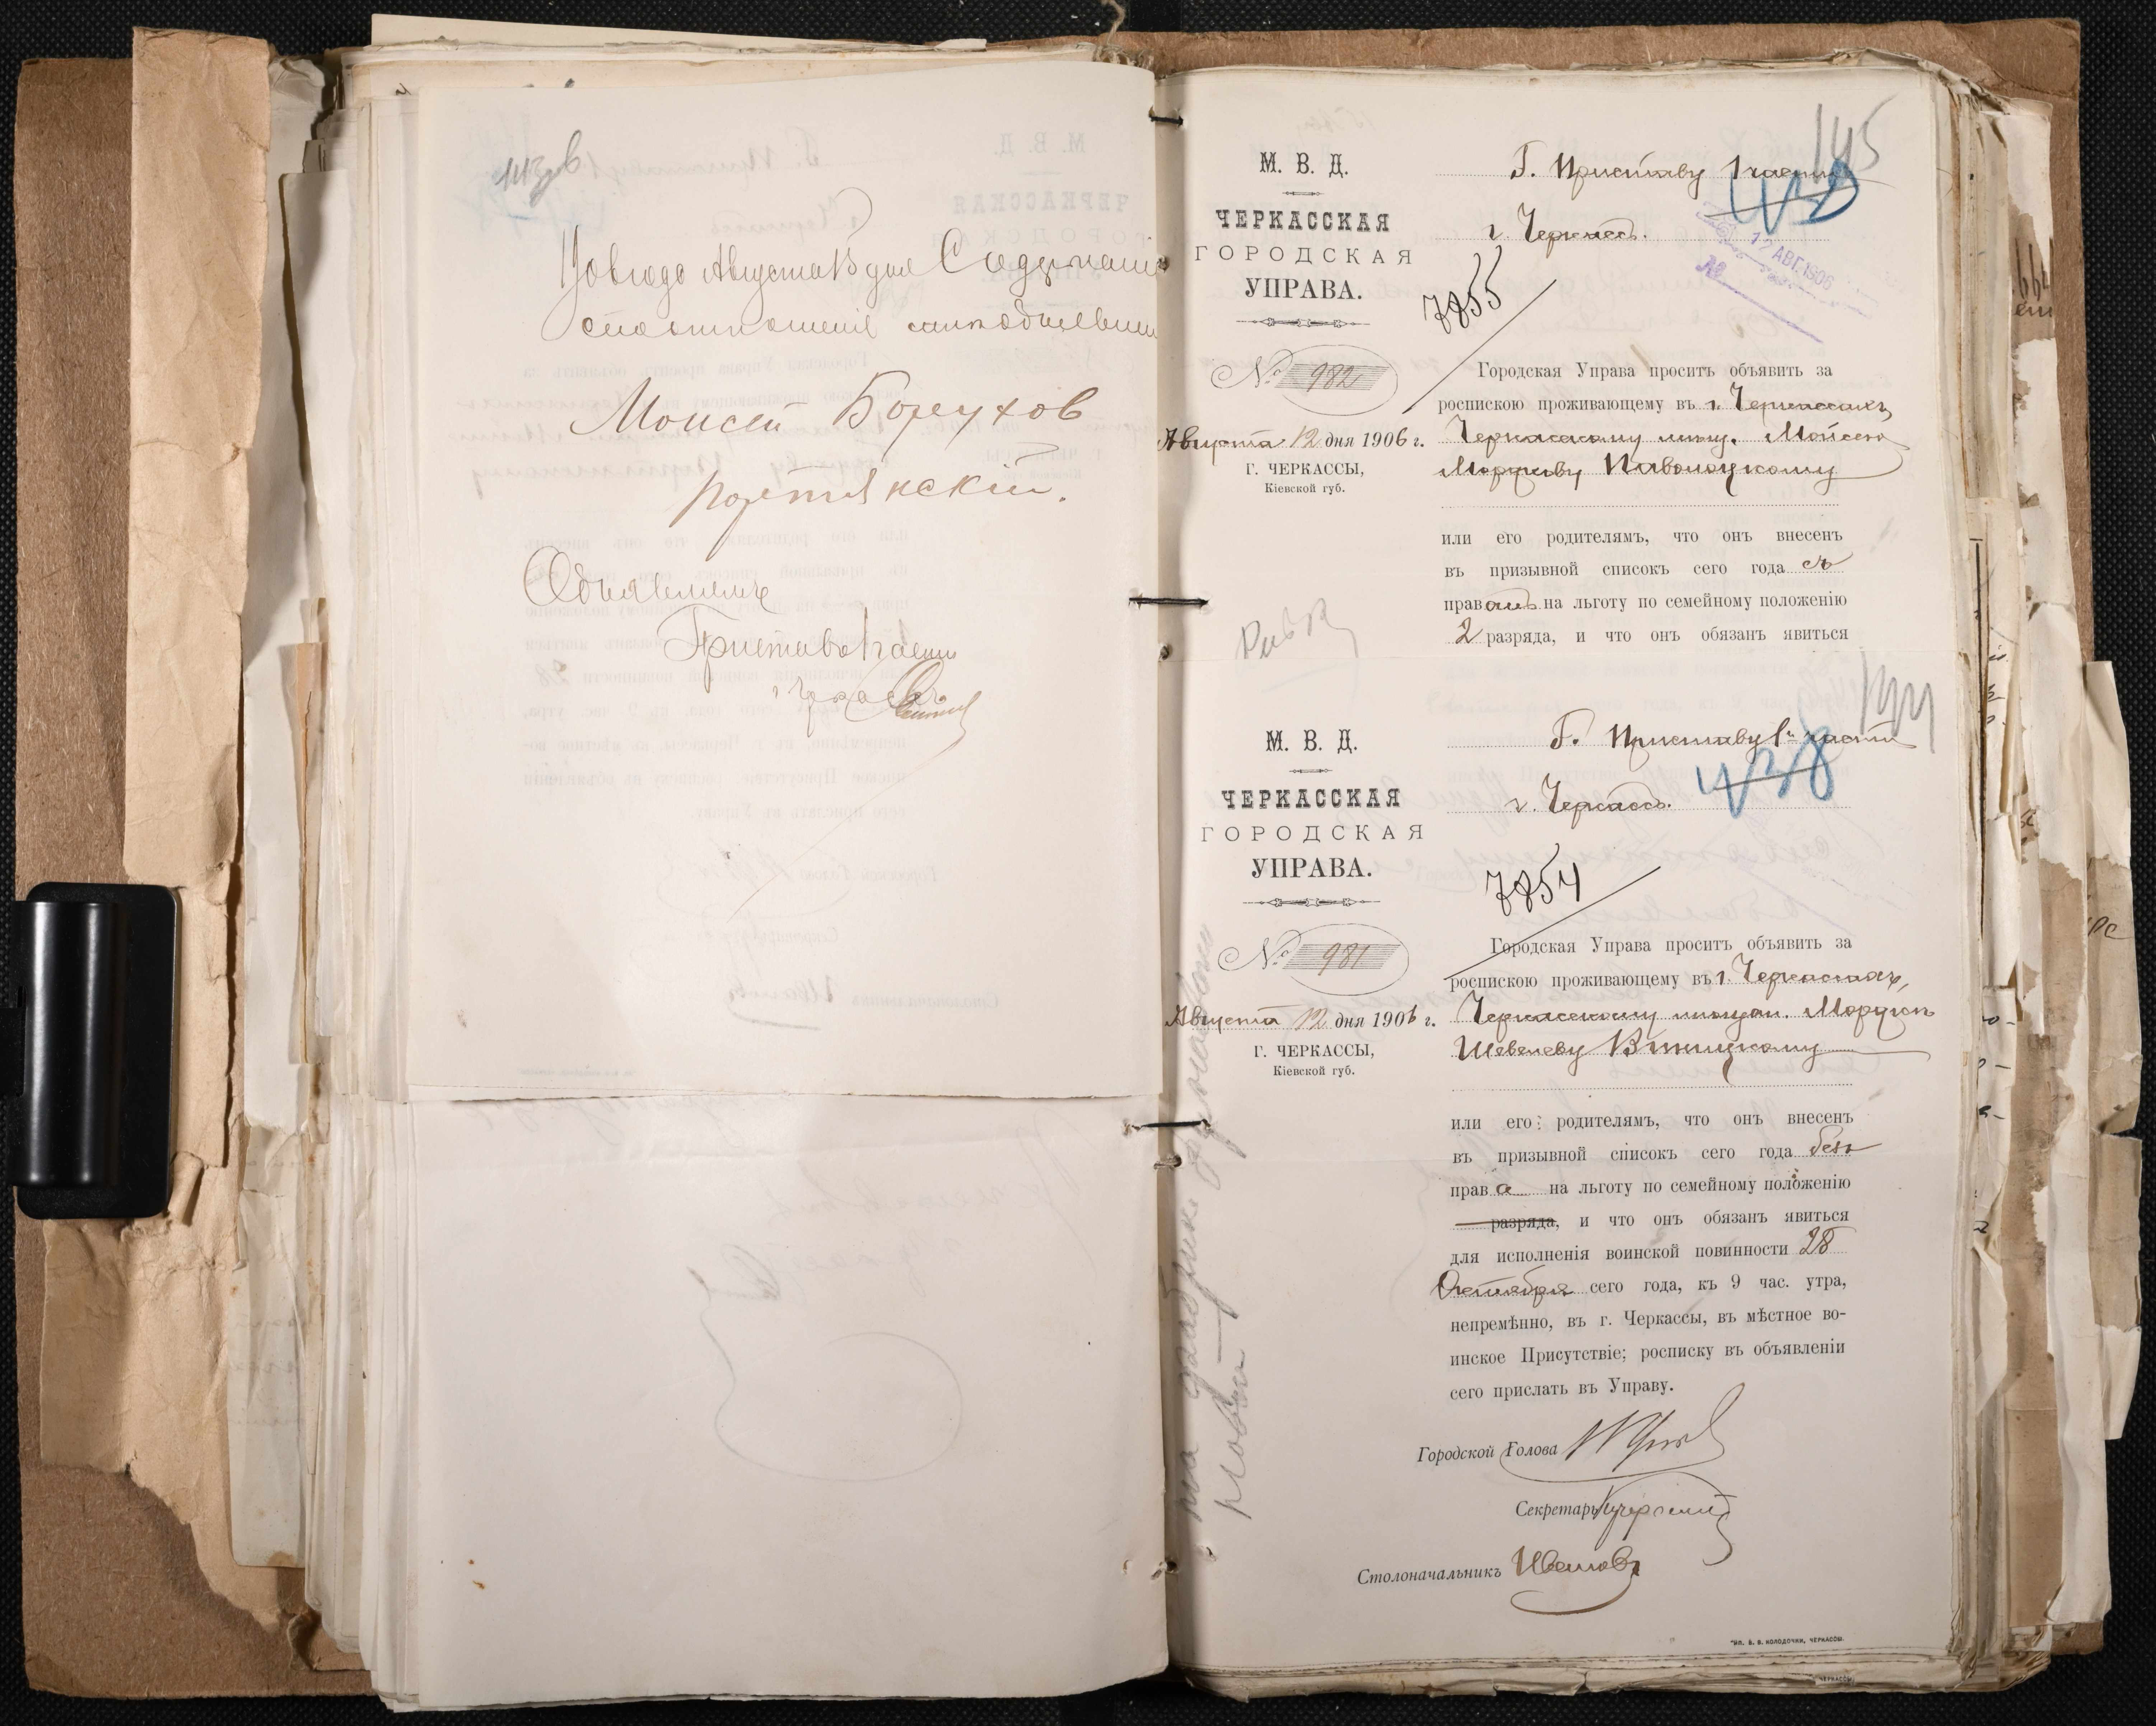 143 об
1906 года Августа 13 дня Содержаніе
сего отношенія мне объявлено
Моисей Борухов
Портянскій.
Объявилъ
Приставъ 1 части
г. Черкассъ
145
М. В. Д.
ЧЕРКАССКАЯ
ГОРОДСКАЯ
УПРАВА.
№ 982
Августа 12 дня 1906 г.
Г. ЧЕРКАССЫ,
Кіевской губ.
Г. Приставу 1 части
г. Черкассъ.
12 АВГ. 1906
№
7855
Городская Управа проситъ объявить за
роспискою проживающему въ г. Черкассахъ,
Черкасскому мѣщ. Мойсею
Мордкову Паволоцкому
или его родителямъ, что онъ внесенъ
въ призывной списокъ сего года съ
правомъ на льготу по семейному положенію
2 разряда, и что онъ обязанъ явиться
144
М. В. Д.
ЧЕРКАССКАЯ
ГОРОДСКАЯ
УПРАВА.
№ 981
Августа 12 дня 1906 г.
Г. ЧЕРКАССЫ,
Кіевской губ.
Г. Приставу 1й части
г. Черкассъ.
7854
Городская Управа проситъ объявить за
роспискою проживающему въ г. Черкассахъ,
Черкасскому мѣщан. Мордуху
Шевелеву Винницкому
или его родителямъ, что онъ внесенъ
въ призывной списокъ сего года безъ
права на льготу по семейному положенію
разряда, и что онъ обязанъ явиться
для исполненія воинской повинности 28
Октября сего года, къ 9 час. утра,
непремѣнно, въ г. Черкассы, въ мѣстное во-
инское Присутствіе; росписку въ объявленіи
сего прислать въ Управу.
Городской Голова
Секретарь
Столоначальникъ Ивановъ
ТИП. Б. В. КОЛОДОЧКИ, ЧЕРКАССЫ.
ЧЕРКАССЫ